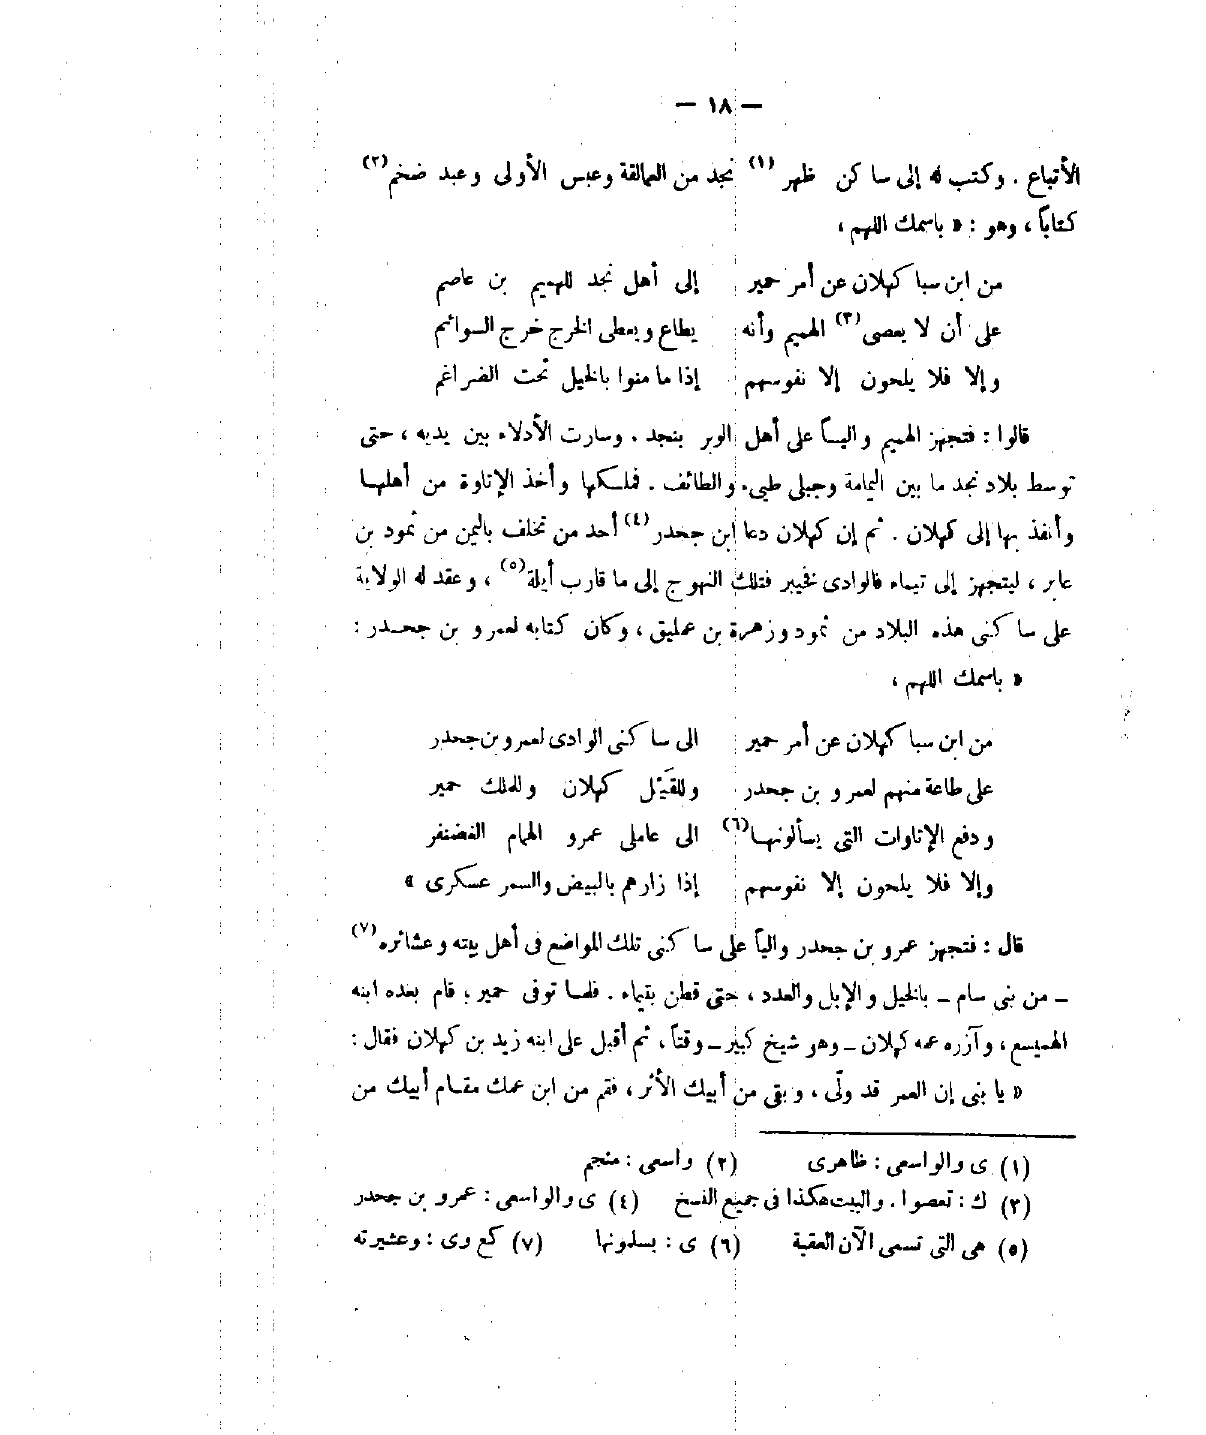 — ١٨ —
الأتباع . وكتب له إلى ساكن ظهر (١) نجد من العمالقة وعبس الأولى وعبد ضخم (٢)
كتاباً ، وهو : « باسمك اللهم ،
من ابن سبا كهلان عن أمر حمير إلى أهل نجد للهميم بن عاصم
على أن لا يعصى (٣) الهميم وأنه يطاع ويعطى الخرج خرج السوائم
وإلا فلا يلحون إلا نفوسهم إذا ما منوا بالخيل تحت الضراغم
قالوا : فتجهز الهميم والياً على أهل الوبر بنجد . وسارت الأدلاء بين يديه ، حتى
توسط بلاد نجد ما بين اليمامة وجبلى طيىء والطائف . فملكها وأخذ الإتاوة من أهلها
وأنفذ بها إلى كهلان . ثم إن كهلان دعا ابن جحدر (٤) أحد من تخلف باليمن من ثمود بن
عابر ، ليتجهز إلى تيماء فالوادى فخيبر فتلك النهوج إلى ما قارب أيلة (٥) ، وعقد له الولاية
على ساكنى هذه البلاد من ثمود وزهرة بن عمليق ، وكان كتابه لعمرو بن جحدر :
« باسمك اللهم ،
من ابن سبا كهلان عن أمر حمير الى ساكنى الوادى لعمرو بن جحدر
على طاعة منهم لعمرو بن جحدر وللقَيْل كهلان وللملك حمير
ودفع الإتاوات التى يسألونها (٦) الى عاملى عمرو الهمام الغضنفر
وإلا فلا يلحون إلا نفوسهم إذا زارهم بالبيض والسمر عسكرى »
قال : فتجهز عمرو بن جحدر والياً على ساكنى تلك المواضع فى أهل بيته وعشائره (٧)
– من بنى سام – بالخيل والإبل والعدد ، حتى قطن بتيماء . فلما توفى حمير ، قام بعده ابنه
الهميسع ، وآزره عمه كهلان – وهو شيخ كبير – وقتاً ، ثم أقبل على ابنه زيد بن كهلان فقال :
« يا بنى إن العمر قد ولّى ، وبقى من أبيك الأثر ، فقم من ابن عمك مقام أبيك من
(١) ى والواسعى : ظاهرى (٢) واسعى : منجم
(٣) ك : تعصوا . والبيت هكذا فى جميع النسخ (٤) ى والواسعى : عمرو بن جحدر
(٥) هى التى تسمى الآن العقبة (٦) ى : يسلمونها (٧) كع وى : وعشيرته